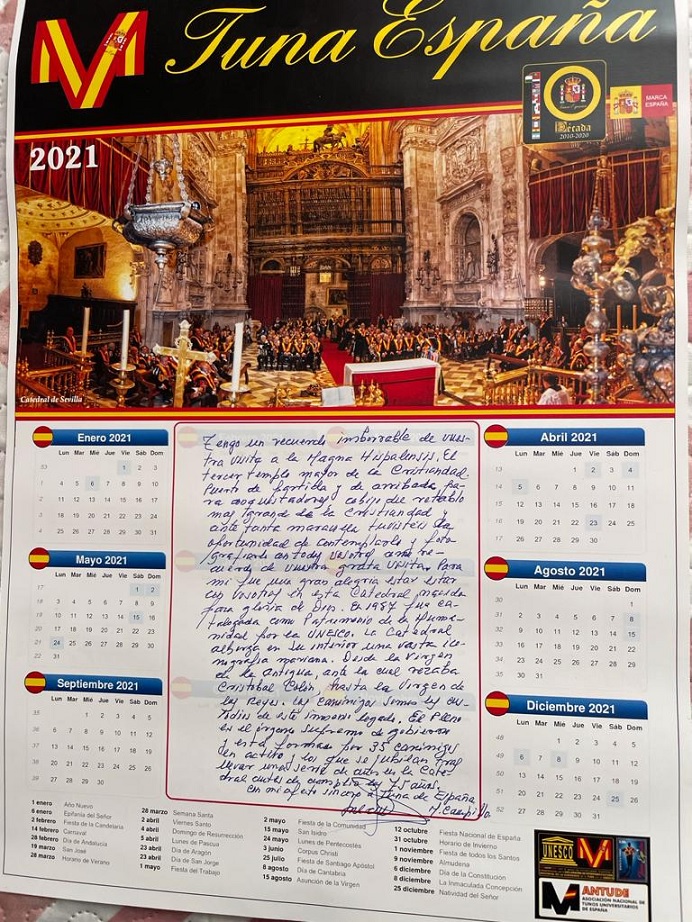 Tuna España
MARCA ESPAÑA
Década
2010-2020
2021
Catedral de Sevilla
Enero 2021
Lun Mar Mié Jue Vie Sáb Dom
53 1 2 3
1 4 5 6 7 8 9 10
2 11 12 13 14 15 16 17
3 18 19 20 21 22 23 24
4 25 26 27 28 29 30 31
Mayo 2021
Lun Mar Mié Jue Vie Sáb Dom
17 1 2
18 3 4 5 6 7 8 9
19 10 11 12 13 14 15 16
20 17 18 19 20 21 22 23
21 24 25 26 27 28 29 30
22 31
Septiembre 2021
Lun Mar Mié Jue Vie Sáb Dom
35 1 2 3 4 5
36 6 7 8 9 10 11 12
37 13 14 15 16 17 18 19
38 20 21 22 23 24 25 26
39 27 28 29 30
Tengo un recuerdo imborrable de vues-
tra visita a la Magna Hispalensis. El
tercer templo mayor de la Cristiandad.
Puerto de partida y de arribada pa-
ra conquistadores, cobijo del retablo
mas grande de la Cristiandad y
ante tanta maravilla tuvisteis la
oportunidad de contemplarlo y foto
grafiaros todos vosotros como re-
cuerdo de vuestra grata visita. Para
mí fue una gran alegría estar estar
con vosotros en esta Catedral nacida
para gloria de Dios. En 1987 fue ca-
talogada como Patrimonio de la Huma-
nidad por la UNESCO. La Catedral
alberga en su interior una vasta ico-
nografia mariana. Desde la Virgen
de la Antigua, ante la cual rezaba
Cristóbal Colón, hasta la Virgen de
los Reyes. Los canónigos somos los cus-
todios de este inmenso legado. El Pleno
es el órgano supremo de gobierno
y está formado por 35 canónigos
en activo, los que se jubilan tras
llevar una serie de años en la Cate-
dral antes de cumplir los 75 años.
Con mi afecto sincero a Tuna de España
Campillo
Abril 2021
Lun Mar Mié Jue Vie Sáb Dom
13 1 2 3 4
14 5 6 7 8 9 10 11
15 12 13 14 15 16 17 18
16 19 20 21 22 23 24 25
17 26 27 28 29 30
Agosto 2021
Lun Mar Mié Jue Vie Sáb Dom
30 1
31 2 3 4 5 6 7 8
32 9 10 11 12 13 14 15
33 16 17 18 19 20 21 22
34 23 24 25 26 27 28 29
35 30 31
Diciembre 2021
Lun Mar Mié Jue Vie Sáb Dom
48 1 2 3 4 5
49 6 7 8 9 10 11 12
50 13 14 15 16 17 18 19
51 20 21 22 23 24 25 26
52 27 28 29 30 31
1 enero Año Nuevo
6 enero Epifanía del Señor
2 febrero Fiesta de la Candelaria
14 febrero Carnaval
28 febrero Día de Andalucía
19 marzo San José
28 marzo Horario de Verano
28 marzo Semana Santa
2 abril Viernes Santo
4 abril Domingo de Resurrección
5 abril Lunes de Pascua
23 abril Día de Aragón
23 abril Día de San Jorge
1 mayo Fiesta del Trabajo
2 mayo Fiesta de la Comunidad
15 mayo San Isidro
24 mayo Lunes de Pentecostés
3 junio Corpus Christi
25 julio Fiesta de Santiago Apóstol
8 agosto Día de Cantabria
15 agosto Asunción de la Virgen
12 octubre Fiesta Nacional de España
31 octubre Horario de Invierno
1 noviembre Fiesta de todos los Santos
9 noviembre Almudena
6 diciembre Día de la Constitucion
8 diciembre La Inmaculada Concepción
25 diciembre Natividad del Señor
UNESCO
ANTUDE
ASOCIACIÓN NACIONAL DE
TUNOS UNIVERSITARIOS
DE ESPAÑA